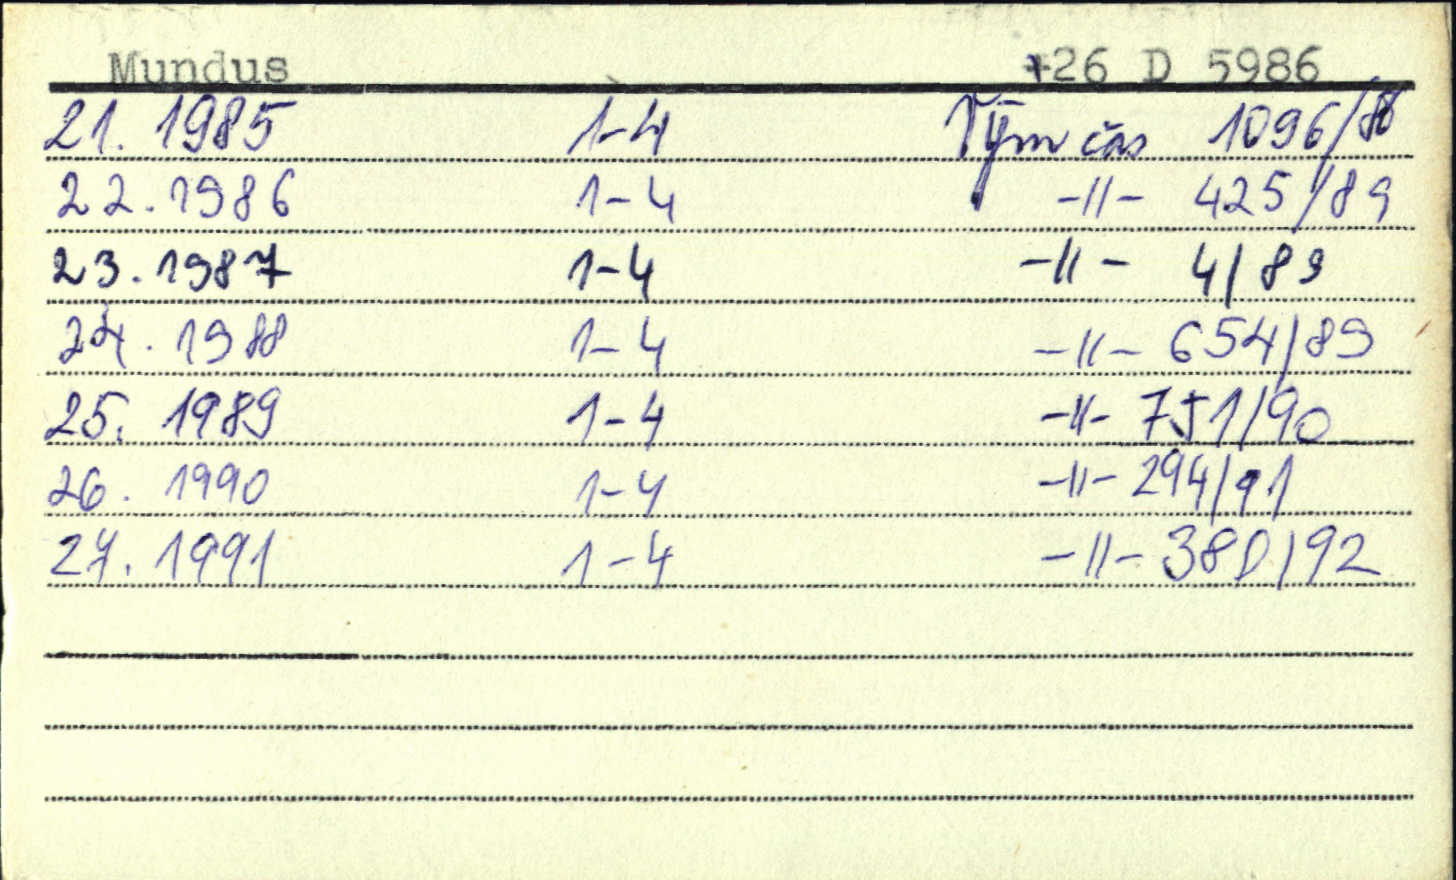 Mundus +26 D 5986
21. 1985 1-4 Vým čas 1096/88
22. 1986 1-4 -||- 425/89
23. 1987 1-4 -||- 4/89
24. 1988 1-4 -||- 654/89
25. 1989 1-4 -||- 751/90
26. 1990 1-4 -||- 294/91
27. 1991 1-4 -||- 380/92